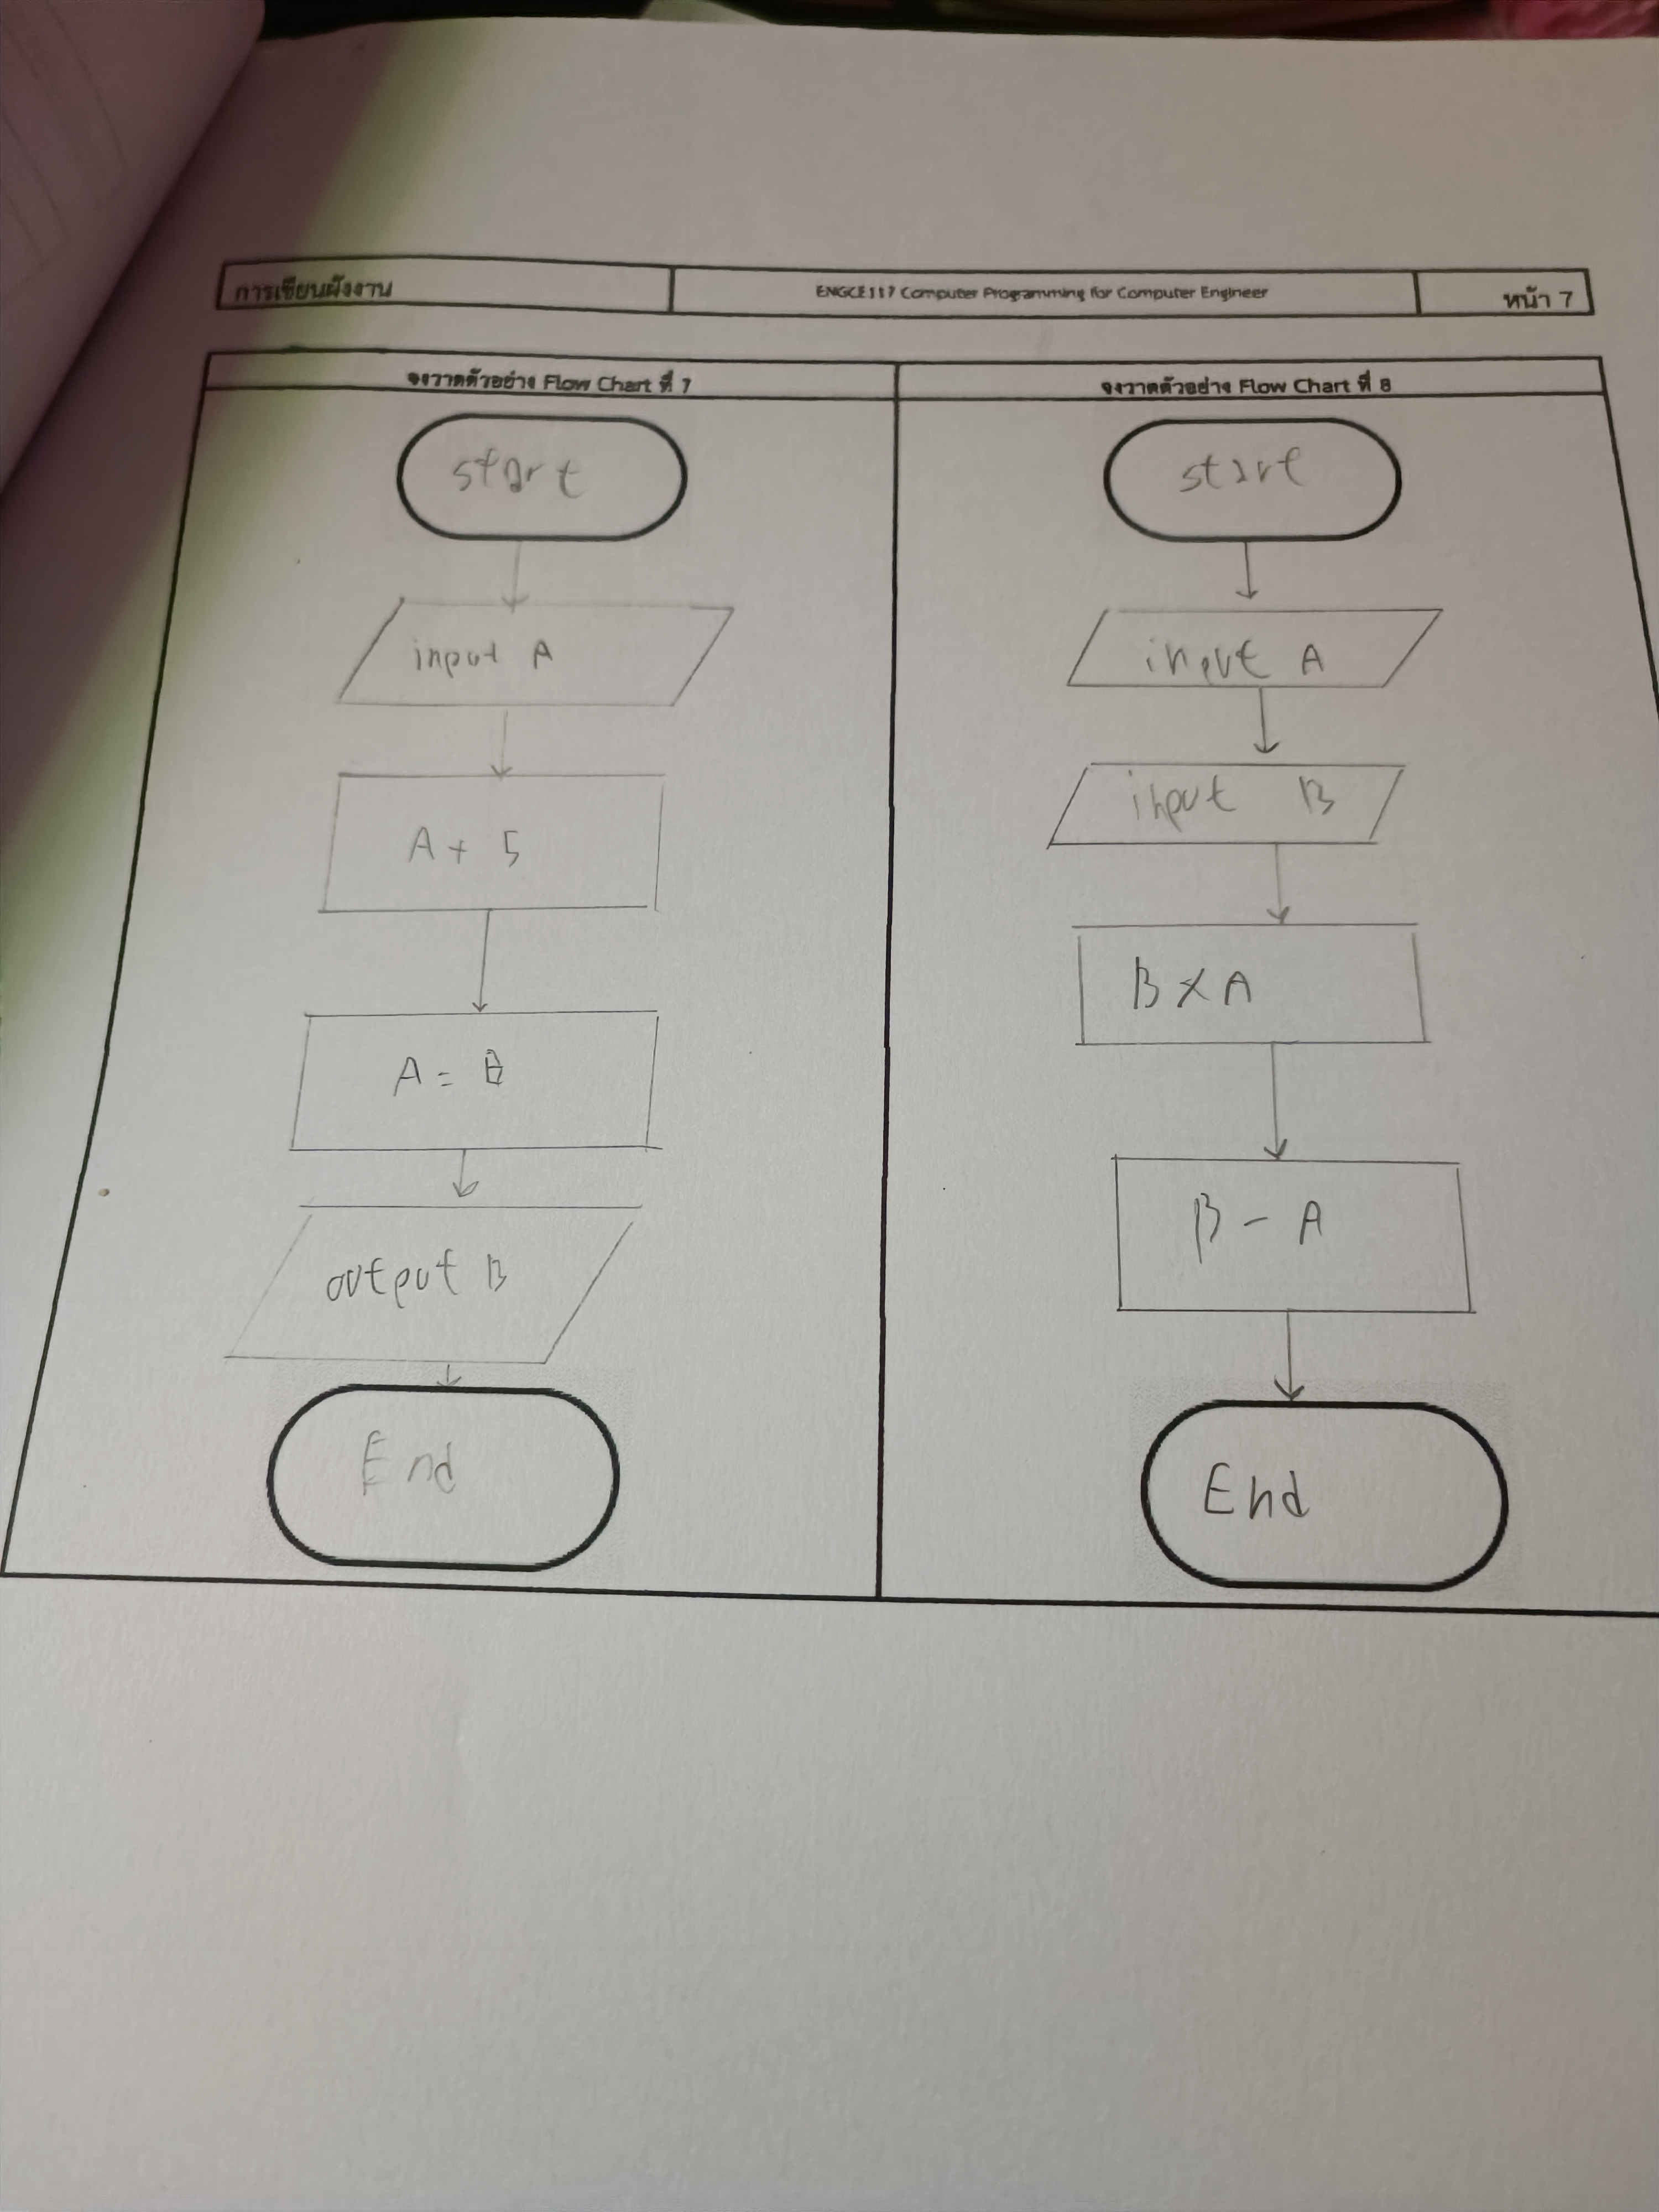 การเขียนผังงาน
ENGCE117 Computer Programming for Computer Engineer
หน้า 7
จงวาดตัวอย่าง Flow Chart ที่ 7
start
input A
A + 5
A = B
output B
End
จงวาดตัวอย่าง Flow Chart ที่ 8
start
input A
input B
B x A
B - A
End